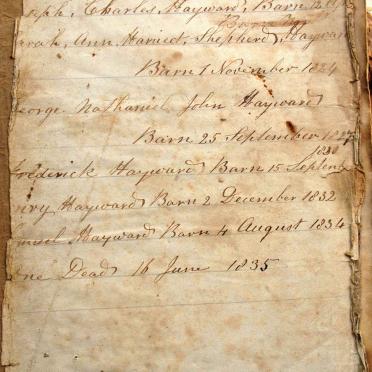 seph, Charles, Hayward, Barn 12
Barn
arah, Ann, Harriet, Shepherd, Hayward
Barn 1 November 1824
George Nathaniel John Hayward
Barn 25 September 1827
1830
Frederick Hayward Barn 15 Septemb
enry Hayward Barn 2 December 1832
muel Hayward Barn 4 August 1834
Dead 16 June 1835